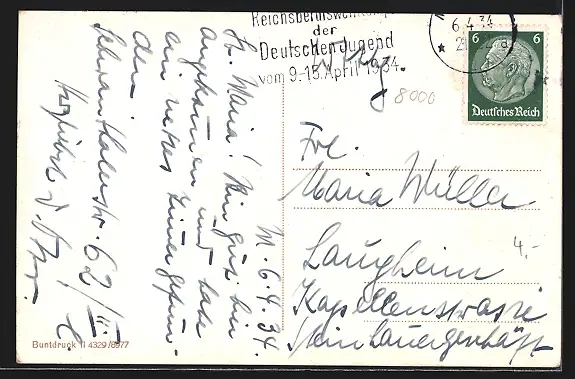 Reichsberufswettkampf
der
Deutschen Jugend
vom 9-15. April 1934
6.4.34
6 6
Deutsches Reich
8000
M. 6.4.34.
Lb. Maria! Bin gut hin
angekommen und habe
ein nettes Zimmer gefun-
den.
Schwanthalerstr. 62/II.
Frl.
Maria Müller
Laupheim
Kapellenstrasse
4.-
Buntdruck II 4329/8977